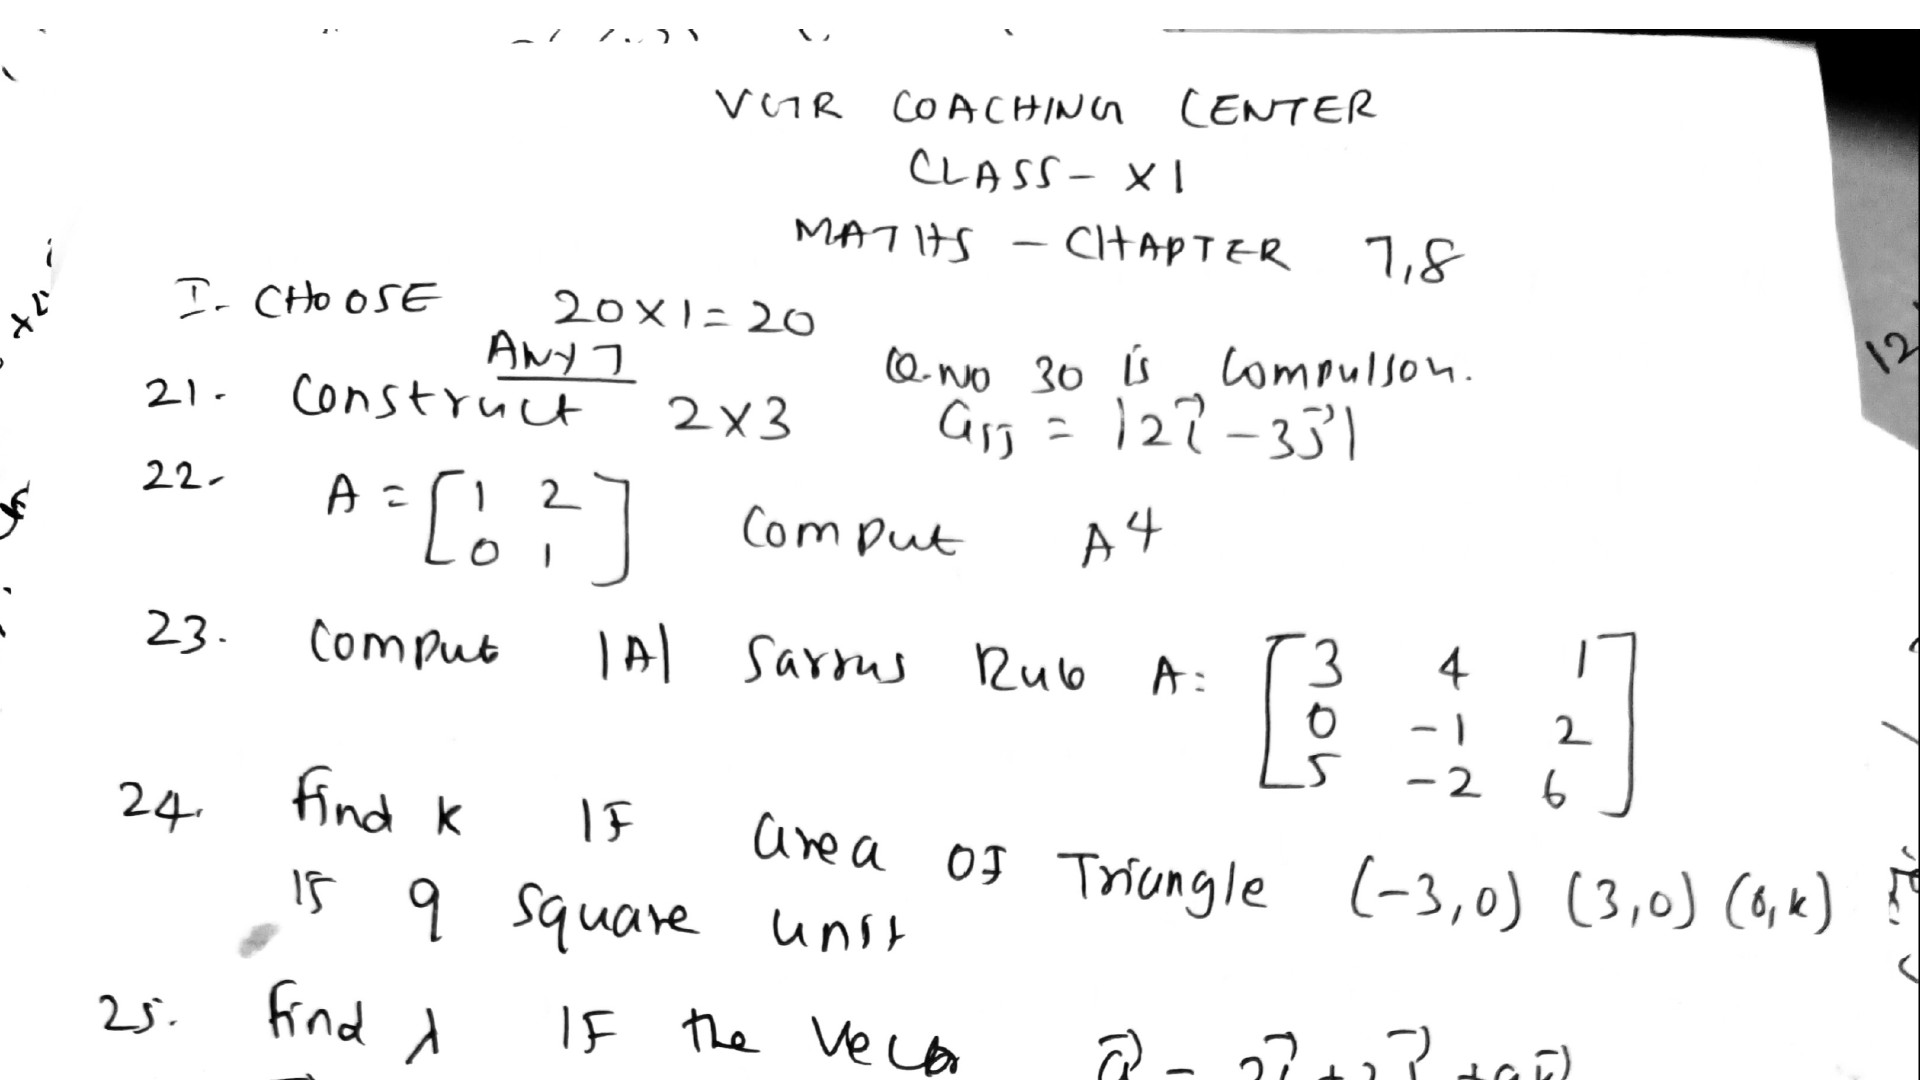 VGR COACHING CENTER
CLASS - XI
MATHS - CHAPTER 7,8
I. CHOOSE 20 x 1 = 20
ANY 7 Q.NO 30 is Compulsory.
21. Construct 2x3 aij = |2i⃗ - 3j⃗|
22. A = [1 2 Comput A⁴
0 1]
23. Comput |A| Sarrus Rule A = [3 4 1
0 -1 2
5 -2 6]
24. find k IF area of Triangle (-3,0) (3,0) (0,k)
is 9 square unit
25. find λ IF the Vector